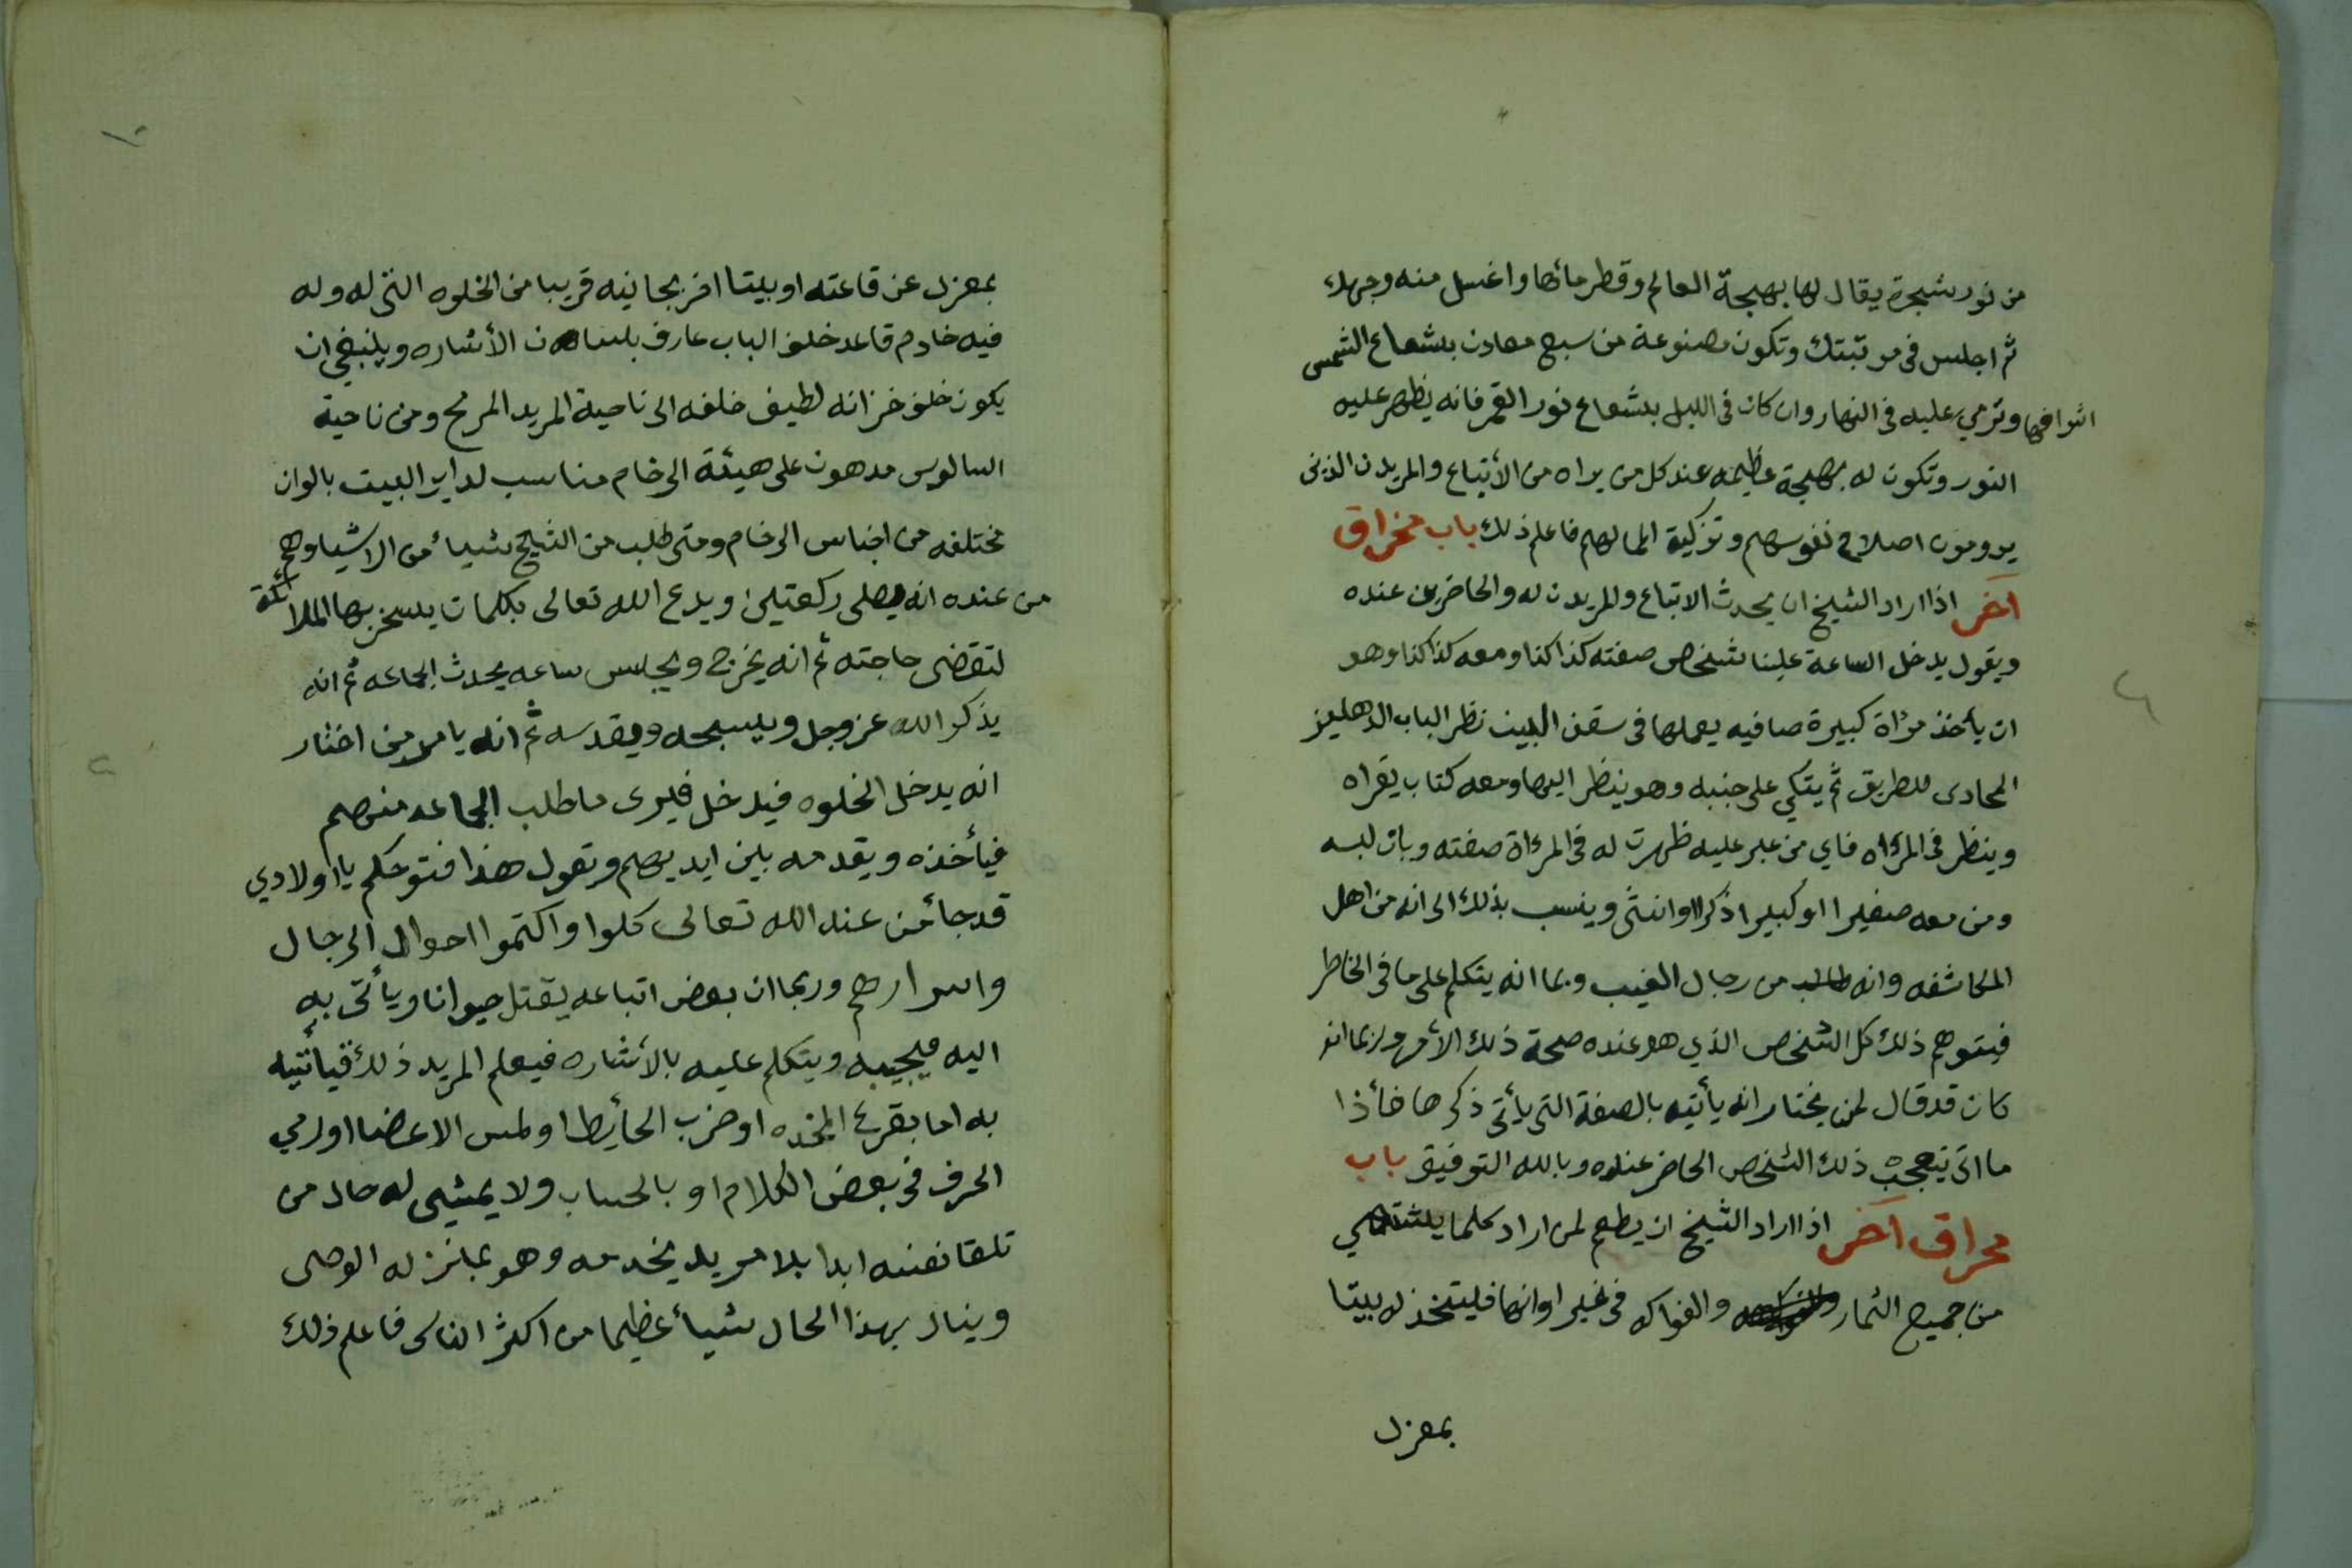 من نور شجرة يقال لها بهجة العالم وقطر مائها واغسل منه وجهك
ثم اجلس فى مرتبتك وتكون مصنوعة من سبع معادن بشعاع الشمس
اثوافها وترمي عليه فى النهار وان كان فى الليل بشعاع نور القمر فانه يظهر عليه
النور وتكون له بهجة عظيمه عند كل من يراه من الأتباع والمريدن الذين
يرومون اصلاح نفوسهم وتزكية اعمالهم فاعلم ذلك باب مخراق
آخر اذا اراد الشيخ ان يحدث الاتباع والمريدن له والحاضرين عنده
ويقول يدخل الساعة علينا شخص صفته كذا كذا ومعه كذا كذا وهو
ان يأخذ مرٱة كبيرة صافيه يعملها فى سقف البيت نظر الباب الدهليز
المحادى للطريق ثم يتكي على جنبه وهو ينظر اليها ومعه كتاب يقراه
وينظر فى المرٱه فاي من عبر عليه ظهرت له فى المرءاة صفته وبان لبسه
ومن معه صغيرا او كبيرا ذكرا او انثى وينسب بذلك الى انه من اهل
المكاشفه وانه طالب من رجال الغيب وبما انه يتكلم على ما فى الخاطر
فيتوهم ذلك كل الشخص الذي هو عنده صحة ذلك الأمر ولربما انه
كان قد قال لمن يختار انه يأتيه بالصفة التى يأتى ذكرها فأذا
ما اتى تعجب ذلك الشخص الحاضر عنده وبالله التوفيق باب
محراق آخر اذا اراد الشيخ ان يطعم لمن اراد كلما يشتهي
من جميع الثمار والفواكه فى غير اوانها فليتخذ له بيتا
بمعزل
١٠
بمعزل عن قاعته او بيتا اخر بجانبه قريبا من الخلوه التى له وله
فيه خادم قاعد خلف الباب عارف بلسان الأشاره وينبغي ان
يكون خلف خزانه لطيف خلفه الى ناحية المريد المرمح ومن ناحية
السالوس مدهون على هيئة الرخام مناسب لداير البيت بالوان
مختلفه من اجناس الرخام ومتى طلب من الشيخ شيأ من الاشيا وهم
من عنده انه يصلى ركعتين ويدع الله تعالى بكلمات يسخر بها الملائكة
لتقضى حاجته ثم انه يخرج ويجلس ساعه يحدث الجماعه ثم انه
يذكر الله عز وجل ويسبحه ويقدسه ثم انه يامر من اختار
انه يدخل الخلوه فيدخل فيرى ما طلب الجماعه منهم
فيأخذه ويقدمه بين ايديهم وتقول هذا فتوحكم يا اولادي
قد جا من عند الله تعالى كلوا واكتموا احوال الرجال
واسرارهم وربما ان بعض اتباعه يقتل حيوانا ويأتى به
اليه فيجيبه ويتكلم عليه بالأشاره فيعلم المريد ذلك فيأتيه
به اما بقرع المخده او ضرب الحأيط او لمس الاعضا او رمي
الحرف فى بعض الكلام او بالحساب ولا يمشى له حال من
تلقا نفسه ابدا بلا مريد يخدمه وهو بمنزله الوصى
وينال بهذا الحال شيأ عظيما من اكثر الناس فاعلم ذلك